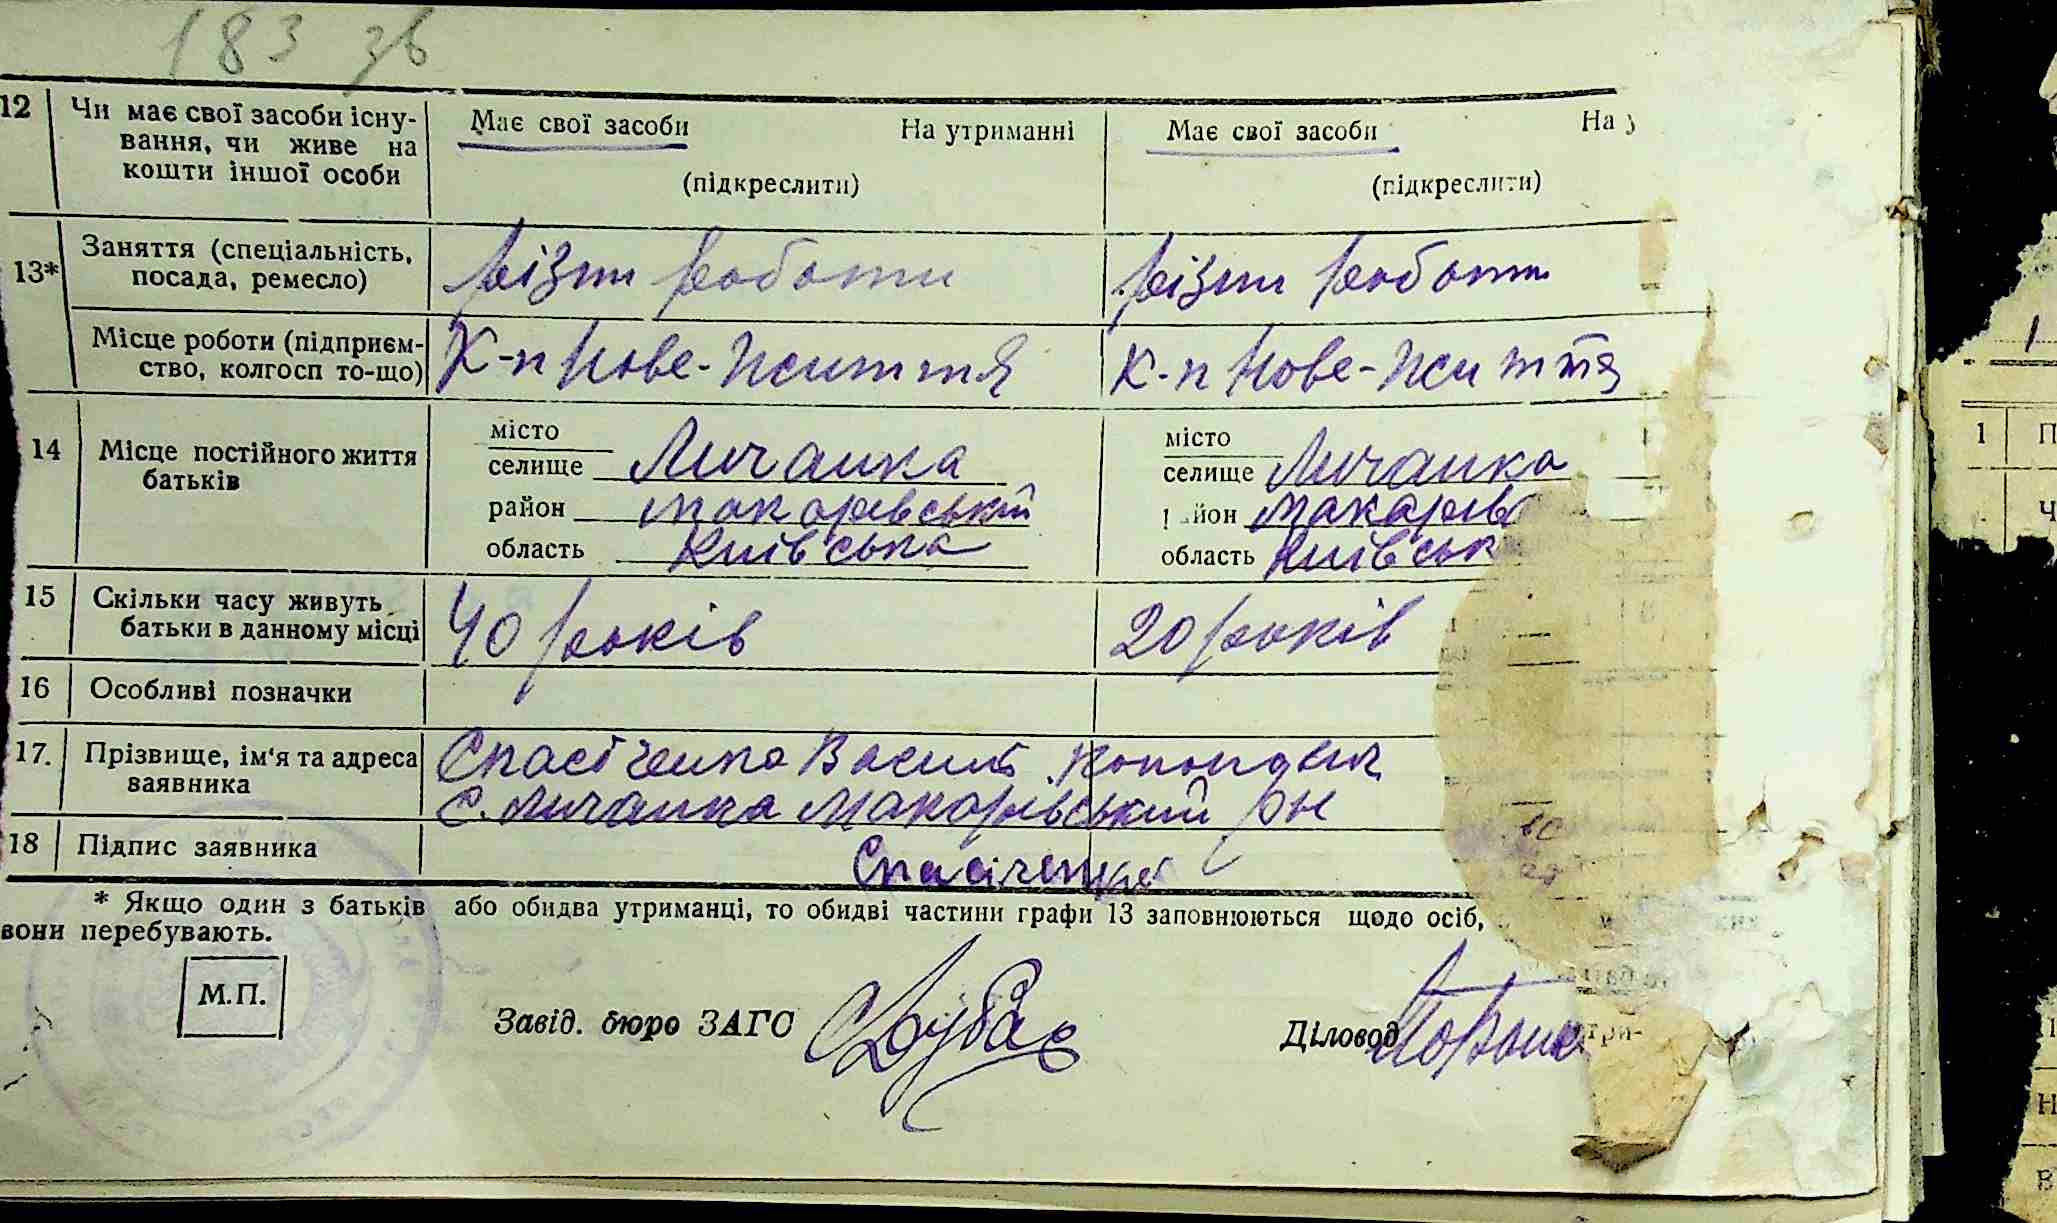 183 зв
12 Чи має свої засоби існу-
вання, чи живе на
кошти іншої особи
Має свої засоби На утриманні
(підкреслити)
Має свої засоби На у
(підкреслити)
13* Заняття (спеціальність,
посада, ремесло)
різни роботи
різни роботи
Місце роботи (підприєм-
ство, колгосп то-що)
К-п Нове-Життя
К-п Нове-Життя
14 Місце постійного життя
батьків
місто
селище Личанка
район Макарівський
область Київська
місто
селище Личанка
йон Макарів
область Київськ
15 Скільки часу живуть
батьки в данному місці
40 років
20 років
16 Особливі позначки
17. Прізвище, ім'я та адреса
заявника
Спасіченко Василь
с. Личанка Макарівський рн
18 Підпис заявника
Спасіченко
* Якщо один з батьків або обидва утриманці, то обидві частини графи 13 заповнюються щодо осіб,
вони перебувають.
М.П.
Завід. бюро ЗАГС
Діловод